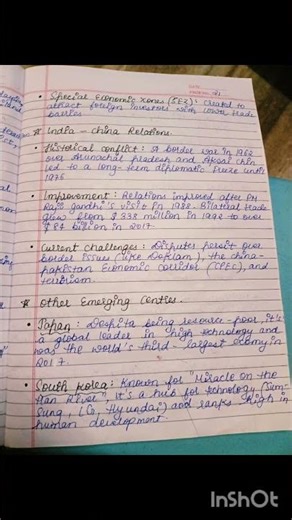 DATE
• Special Economic zones (SEZ): created to
attract foreign investors with lower trade
barriers
* India - China Relation.
• Historical conflict: A border war in 1962
over Arunachal pradesh and Aksai chin
led to a long-term diplomatic freeze until
1976
• Improvement: Relations improved after PM
Rajiv gandhi's visit in 1988. Bilateral trade
grew from $ 338 million in 1992 to over
$ 84 billion in 2017.
• Current challenges: Disputes persist over
border issues (like Doklam), the china-
pakistan Economic corridor (CPEC), and
terrorism.
* Other Emerging Centres.
• Japan: Despite being resource-poor, it's
a global leader in high technology and
was the world's third-largest economy in
2017.
• South Korea: Known for "Miracle on the
Han River", it's a hub for technology (Sam-
sung, LG, Hyundai) and ranks high in
human development
InShOt